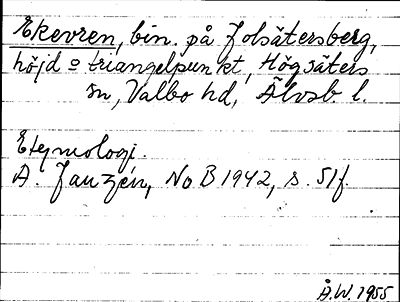 Ekevren, bin. på Jolsätersberg,
höjd o triangelpunkt, Högsäters
sn, Valbo hd, Älvsb. l.
Etymologi.
A. Janzén, NoB 1942, s. 51f.
Å.W. 1955